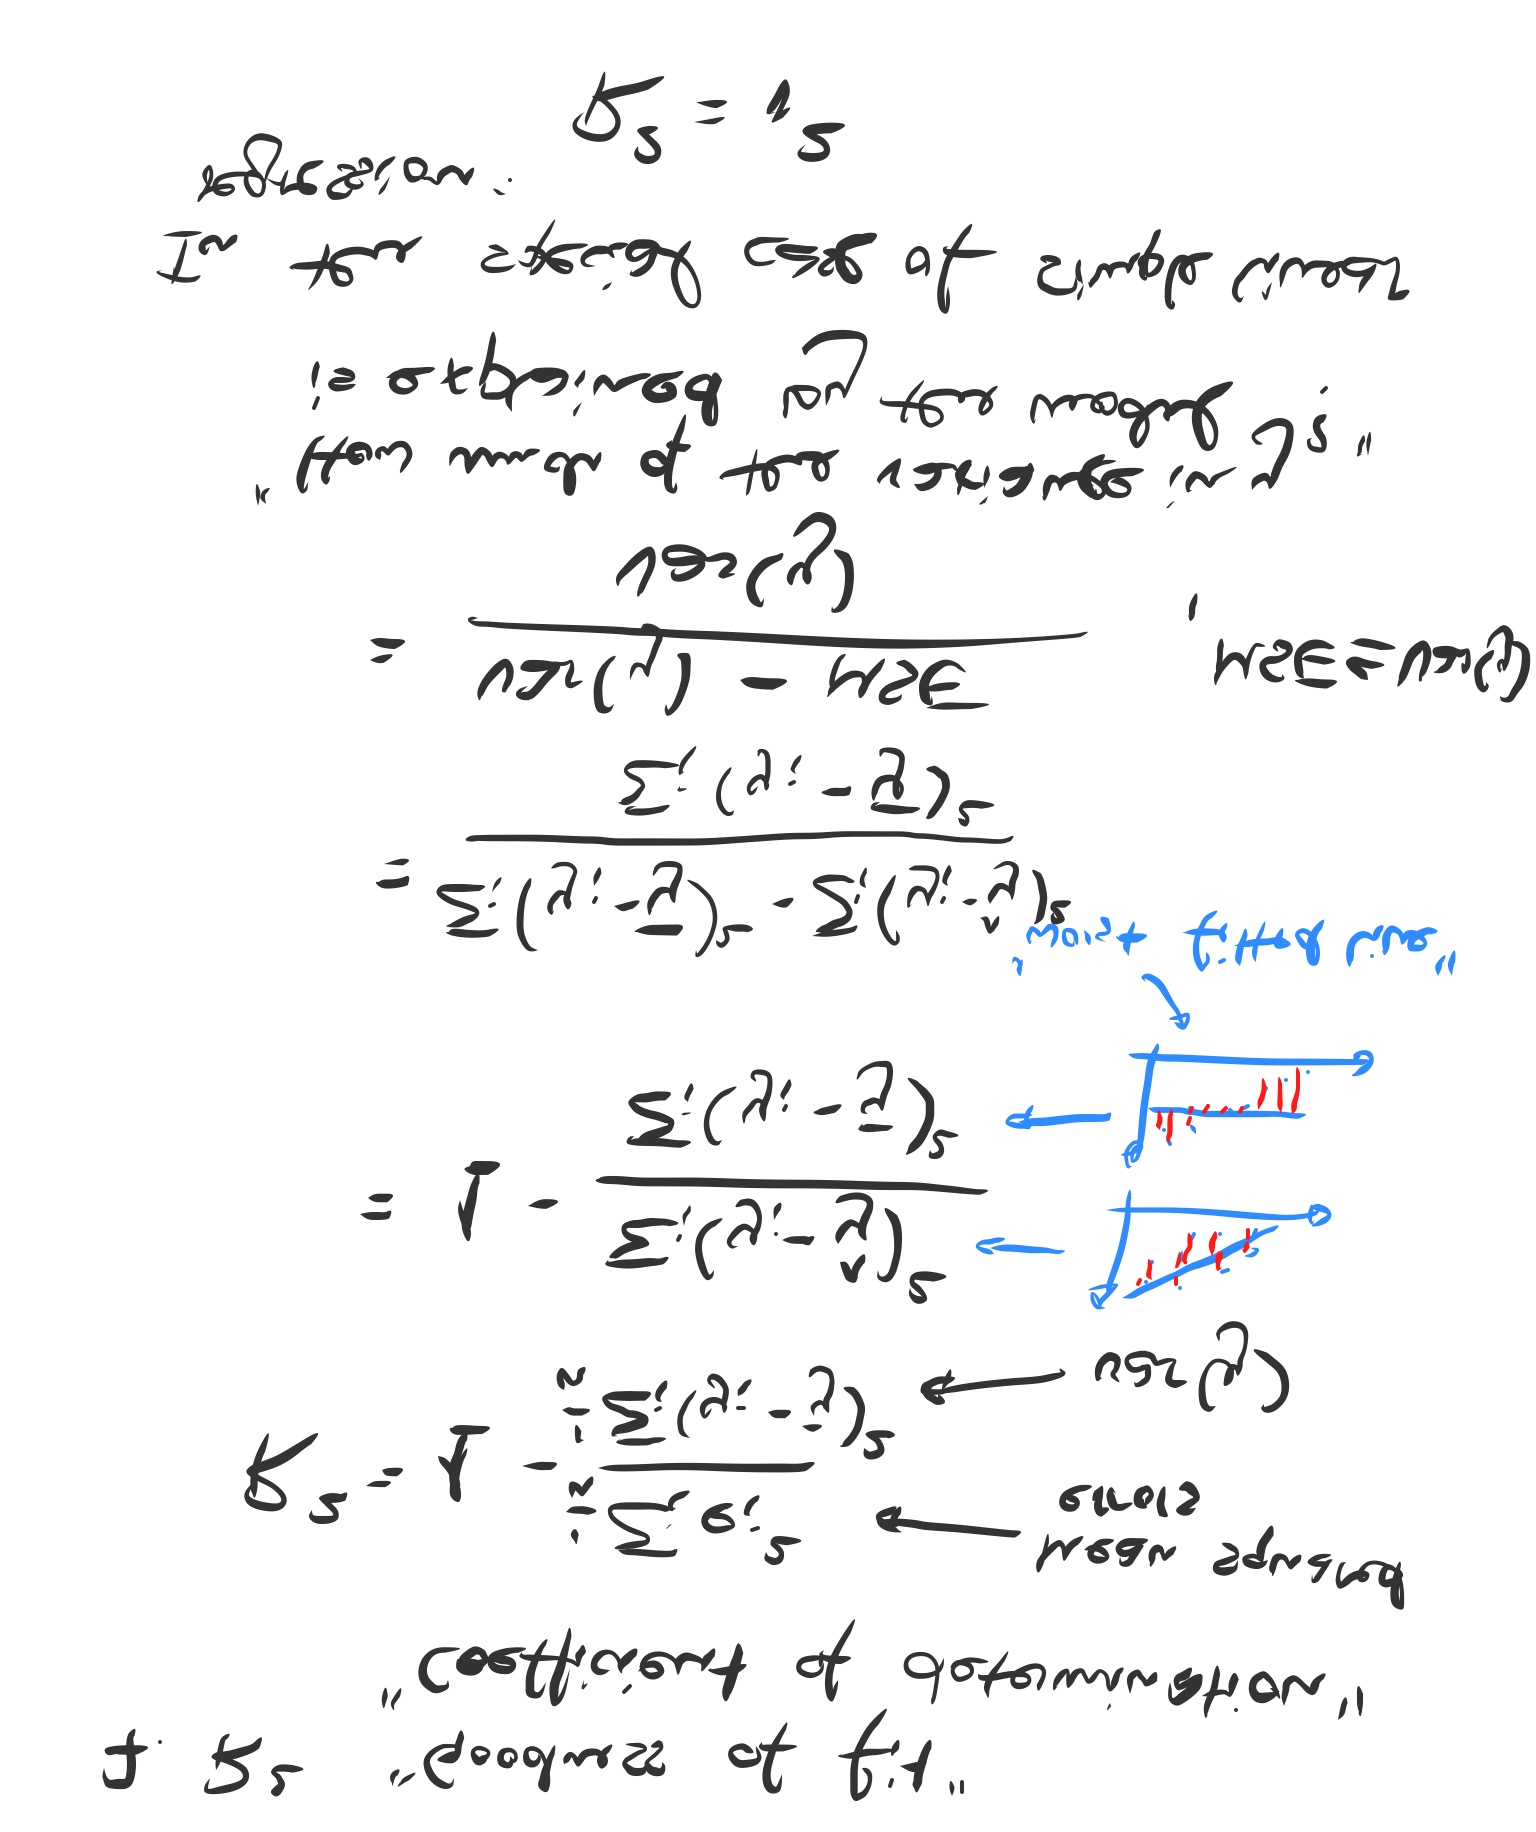 7. R² "Goodness of fit"
"Coefficient of determination"
R² = 1 - (1/n Σᵢ eᵢ²) / (1/n Σᵢ(yᵢ - ȳ)²)
mean squared
errors
var(y)
= 1 - Σᵢ(yᵢ - ŷ)² / Σᵢ(yᵢ - ȳ)²
"worst fitted line"
= (Σᵢ(yᵢ - ȳ)² - Σᵢ(yᵢ - ŷ)²) / Σᵢ(yᵢ - ȳ)²
= (var(y) - MSE) / Var(y) , MSE ≤ Var(y)
"How much of the variance in y
is explained by the model?"
In the special case of simple linear
regression:
R² = r²